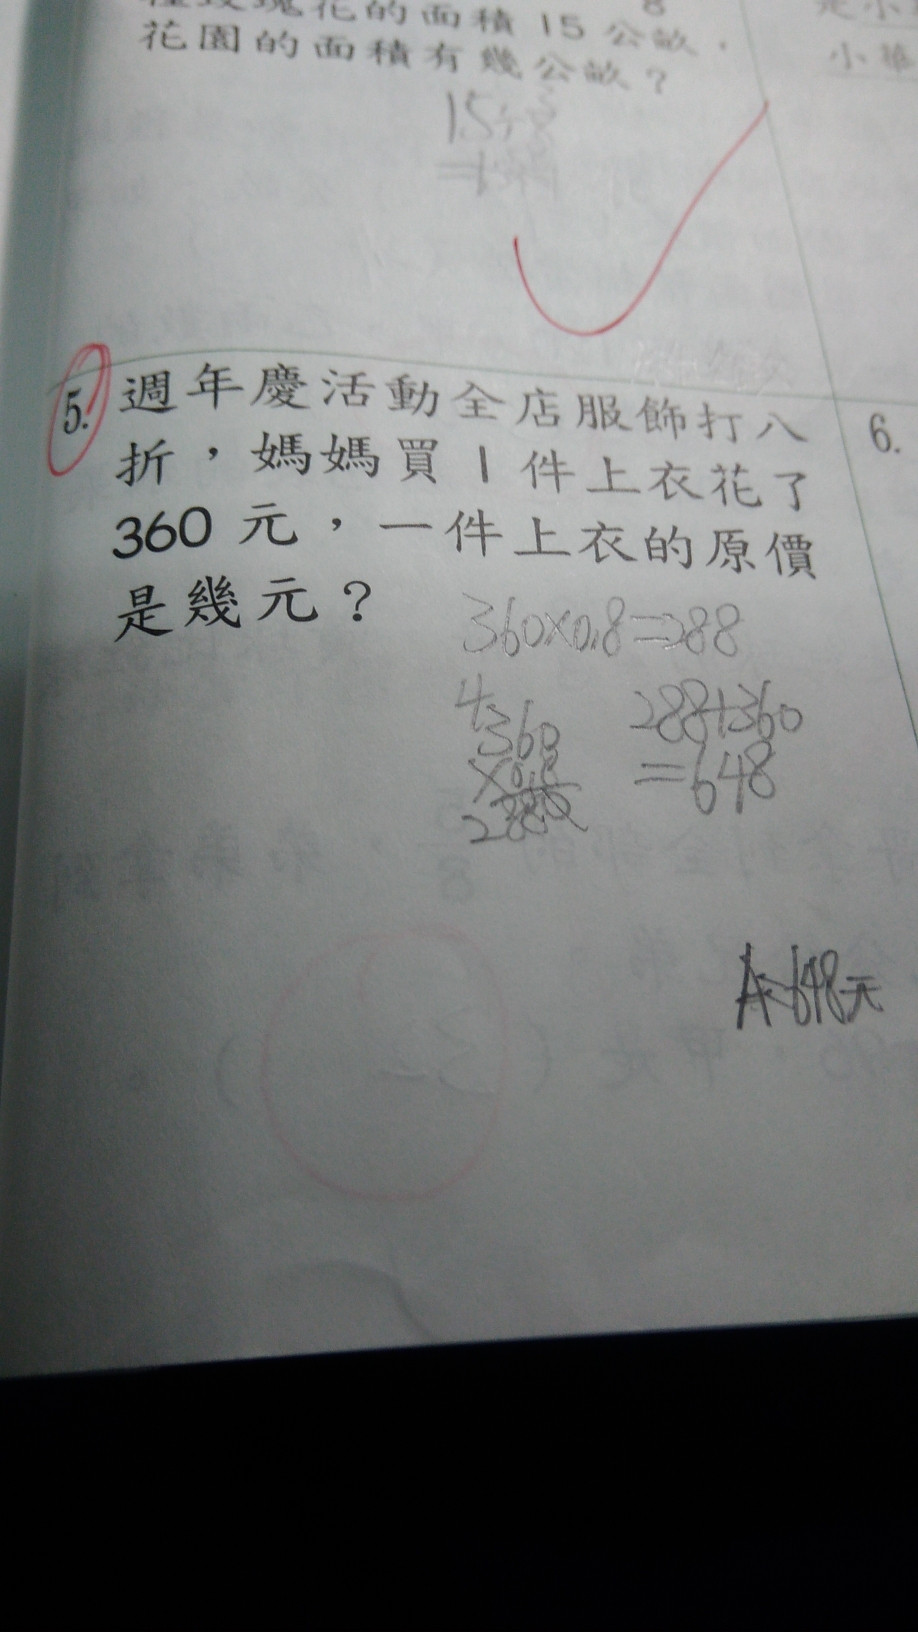 種玫瑰花的面積 15 公畝，
花園的面積有幾公畝？
8
是小
小華
15÷
5. 週年慶活動全店服飾打八
折，媽媽買 1 件上衣花了
360 元，一件上衣的原價
是幾元？
360×0.8=288
4
360
×0.8
2880
288+360
=648
A:648元
6.